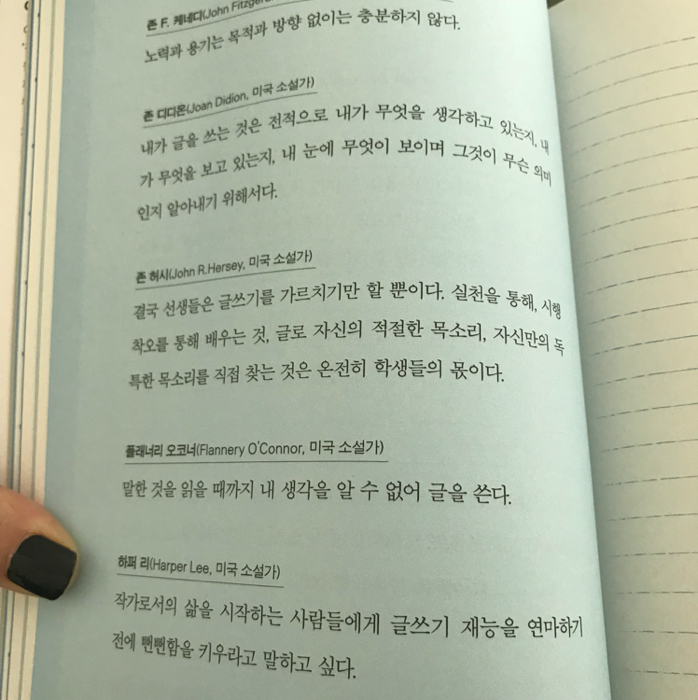 존 F. 케네디(John Fitzgera
노력과 용기는 목적과 방향 없이는 충분하지 않다.
존 디디온(Joan Didion, 미국 소설가)
내가 글을 쓰는 것은 전적으로 내가 무엇을 생각하고 있는지, 내
가 무엇을 보고 있는지, 내 눈에 무엇이 보이며 그것이 무슨 의미
인지 알아내기 위해서다.
존 허시(John R.Hersey, 미국 소설가)
결국 선생들은 글쓰기를 가르치기만 할 뿐이다. 실천을 통해, 시행
착오를 통해 배우는 것, 글로 자신의 적절한 목소리, 자신만의 독
특한 목소리를 직접 찾는 것은 온전히 학생들의 몫이다.
플래너리 오코너(Flannery O'Connor, 미국 소설가)
말한 것을 읽을 때까지 내 생각을 알 수 없어 글을 쓴다.
하퍼 리(Harper Lee, 미국 소설가)
작가로서의 삶을 시작하는 사람들에게 글쓰기 재능을 연마하기
전에 뻔뻔함을 키우라고 말하고 싶다.